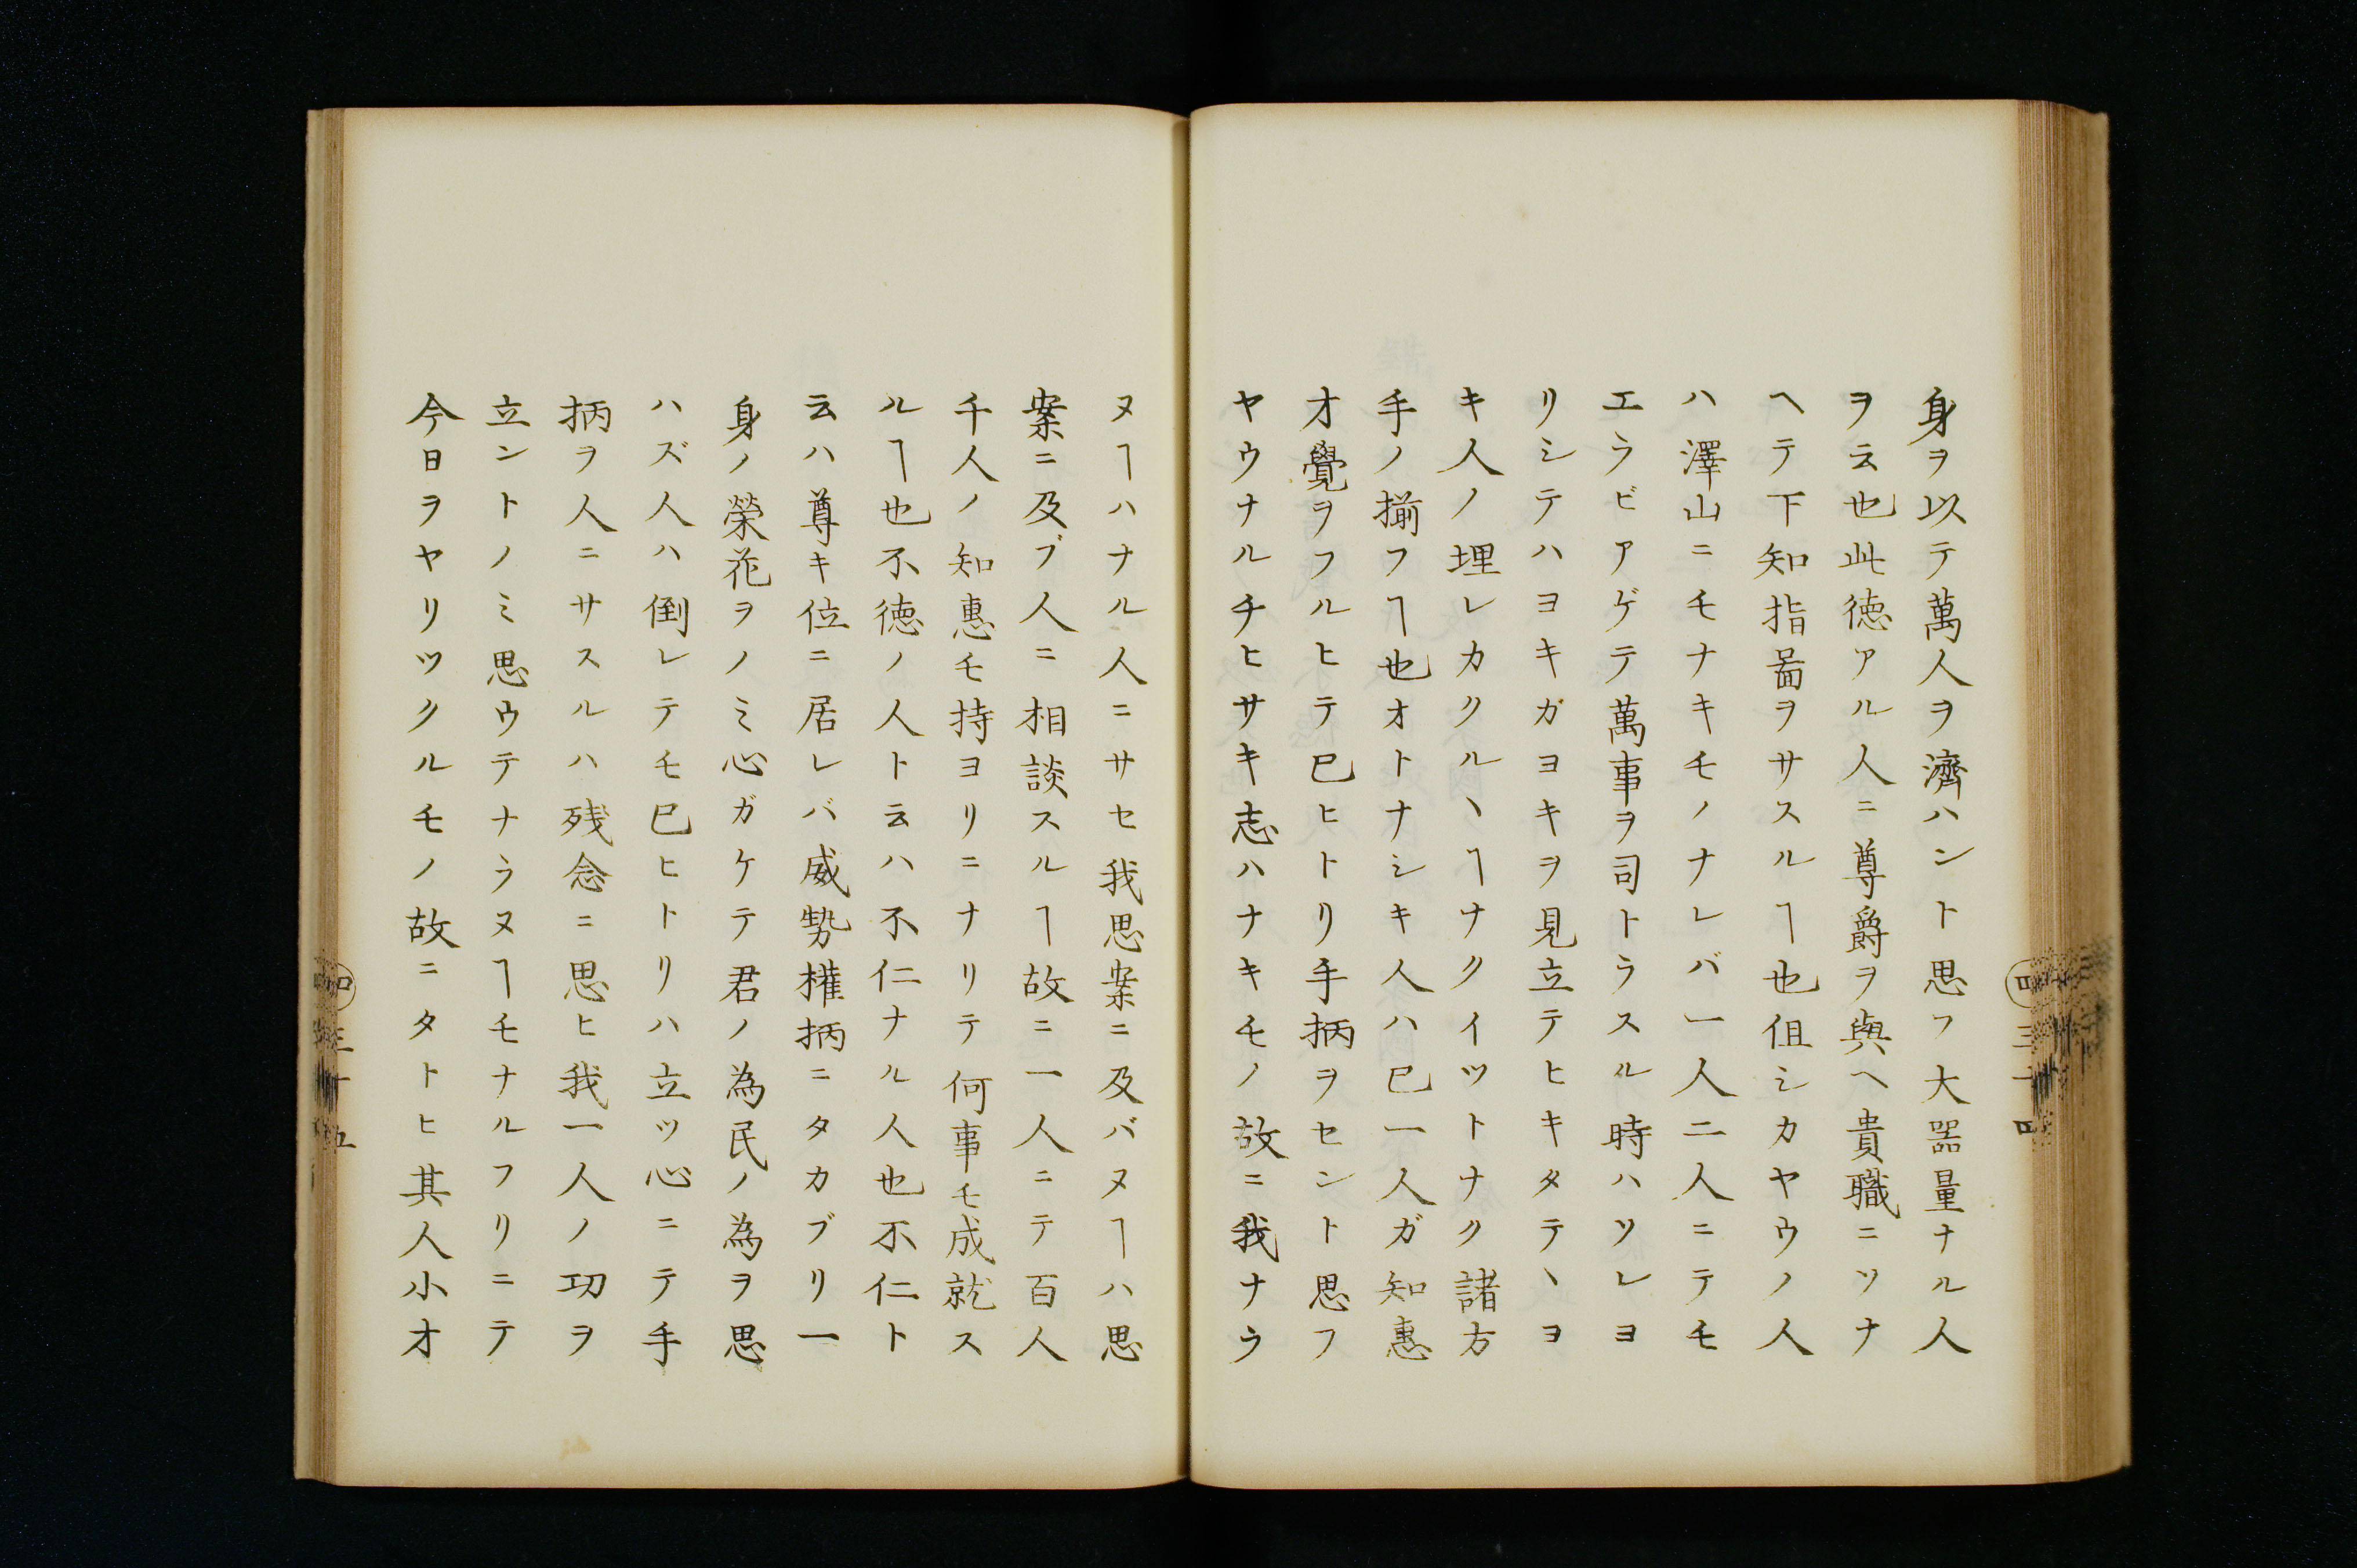 身ヲ以テ萬人ヲ濟ハント思フ大器量ナル人
ヲ云也此徳アル人ニ尊爵ヲ與ヘ貴職ニツナ
ヘテ下知指啚ヲサスルヿ也但シカヤウノ人
ハ澤山ニモナキモノナレバ一人二人ニテモ
エラビアゲテ萬事ヲ司トラスル時ハソレヨ
リシテハヨキガヨキヲ見立テヒキタテヽヨ
キ人ノ埋レカクルヽヿナクイツトナク諸方
手ノ揃フヿ也オトナシキ人ハ已一人ガ知惠
才覺ヲフルヒテ已ヒトリ手柄ヲセント思フ
ヤウナルチヒサキ志ハナキモノ故ニ我ナラ
ヌヿハナル人ニサセ我思案ニ及バヌヿハ思
案ニ及ブ人ニ相談スルヿ故ニ一人ニテ百人
千人ノ知惠モ持ヨリニナリテ何事モ成就ス
ルヿ也不徳ノ人ト云ハ不仁ナル人也不仁ト
云ハ尊キ位ニ居レバ威勢權柄ニタカブリ一
身ノ榮花ヲノミ心ガケテ君ノ為民ノ為ヲ思
ハズ人ハ倒レテモ已ヒトリハ立ツ心ニテ手
柄ヲ人ニサスルハ残念ニ思ヒ我一人ノ功ヲ
立ントノミ思ウテナラヌヿモナルフリニテ
今日ヲヤリツクルモノ故ニタトヒ其人小才
四
三十四
四
三十五